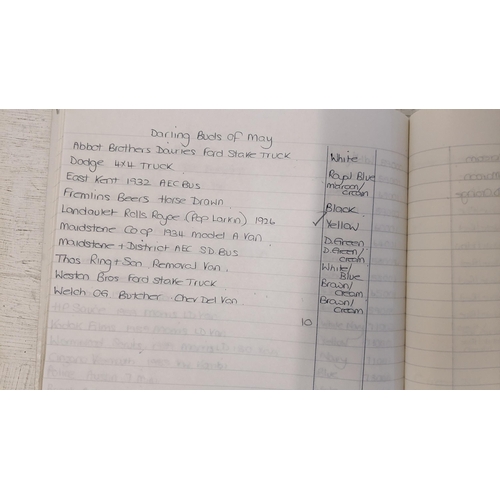 Darling Buds of May
Abbot Brothers Dairies Ford Stake Truck White
Dodge 4x4 Truck Royal Blue
East Kent 1932 AEC Bus maroon/cream
Fremlins Beers Horse Drawn Black
Landaulet Rolls Royce (Pop Larkin) 1926 ✓ Yellow
Maidstone Co op 1934 model A Van D.Green
Maidstone + District AEC SD BUS D.Green/cream
Thos Ring + Son Removal Van White/Blue
Weston Bros Ford Stake Truck Brown/Cream
Welch OG Butcher Chev Del Van Brown/Cream
10